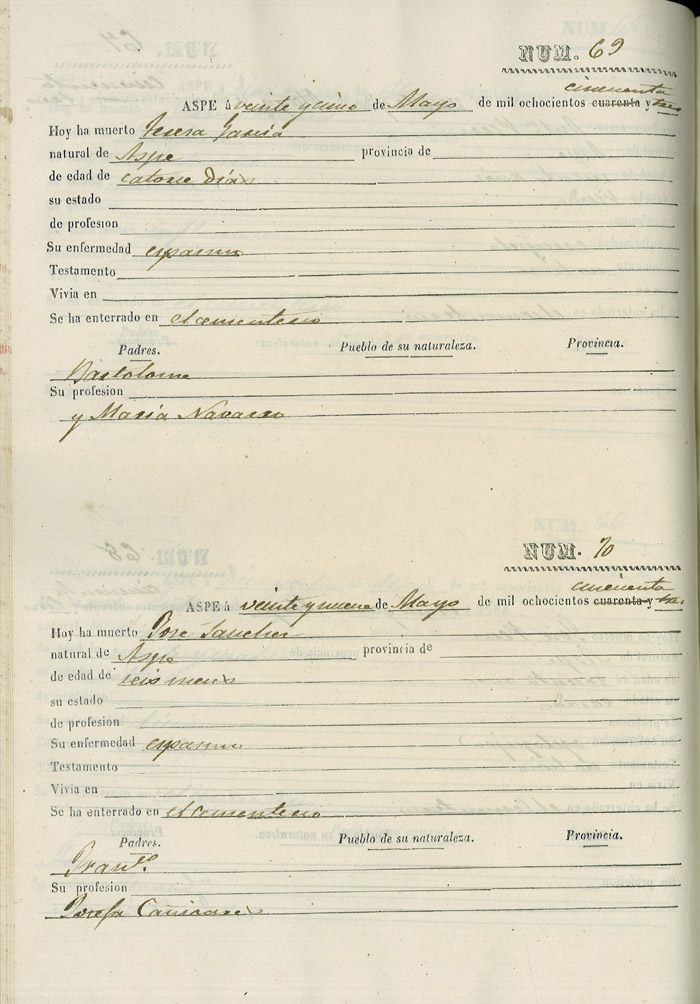 NUM. 69
cincuenta
ASPE á veinte y cinco de Mayo de mil ochocientos cuarenta y tres
Hoy ha muerto Teresa Garcia
natural de Aspe provincia de
de edad de catorce dias
su estado
de profesion
Su enfermedad espasmo
Testamento
Vivia en
Se ha enterrado en el cementerio
Padres. Pueblo de su naturaleza. Provincia.
Bartolome
Su profesion
y Maria Navarro
NUM. 70
cincuenta
ASPE á veinte y nueve de Mayo de mil ochocientos cuarenta y tres
Hoy ha muerto Jose Sanchez
natural de Aspe provincia de
de edad de seis meses
su estado
de profesion
Su enfermedad espasmo
Testamento
Vivia en
Se ha enterrado en el cementerio
Padres. Pueblo de su naturaleza. Provincia.
Su profesion
Josefa Cañizares